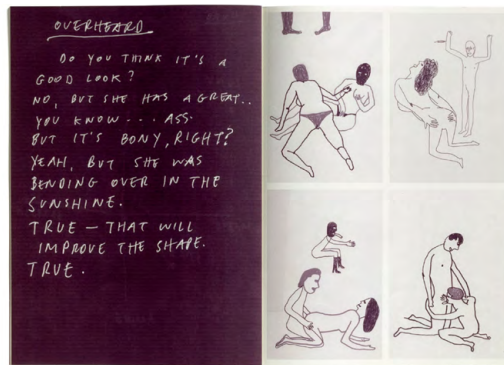 OVERHEARD
DO YOU THINK IT'S A
GOOD LOOK?
NO, BUT SHE HAS A GREAT..
YOU KNOW... ASS.
BUT IT'S BONY, RIGHT?
YEAH, BUT SHE WAS
BENDING OVER IN THE
SUNSHINE.
TRUE — THAT WILL
IMPROVE THE SHAPE.
TRUE.